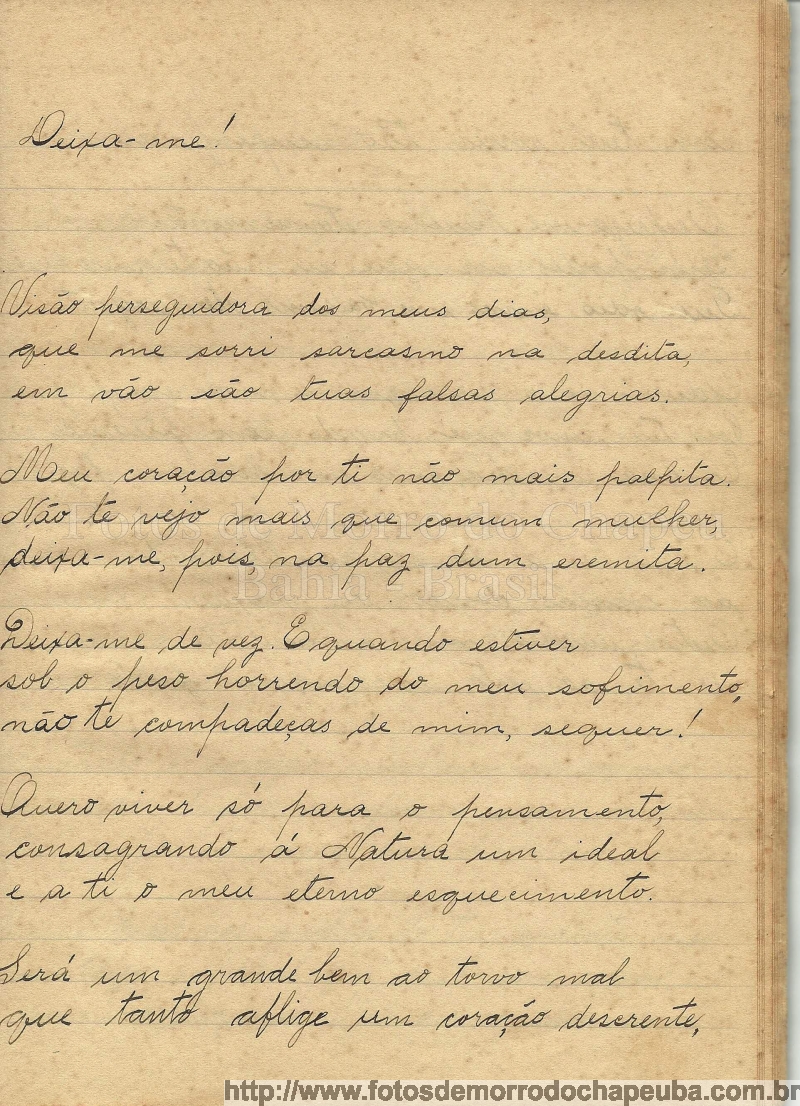 Deixa-me!
Visão perseguidora dos meus dias,
que me sorri sarcasmo na desdita,
em vão são tuas falsas alegrias.
Meu coração por ti não mais palpita.
Não te vejo mais que comum mulher,
deixa-me, pois na paz dum eremita.
Deixa-me de vez. E quando estiver
sob o peso horrendo do meu sofrimento,
não te compadeças de mim, sequer!
Quero viver só para o pensamento,
consagrando á Natura um ideal
e a ti o meu eterno esquecimento.
Será um grande bem ao torvo mal
que tanto aflige um coração descrente,
Fotos de Morro do Chapéu
Bahia - Brasil
http://www.fotosdemorrodochapeuba.com.br